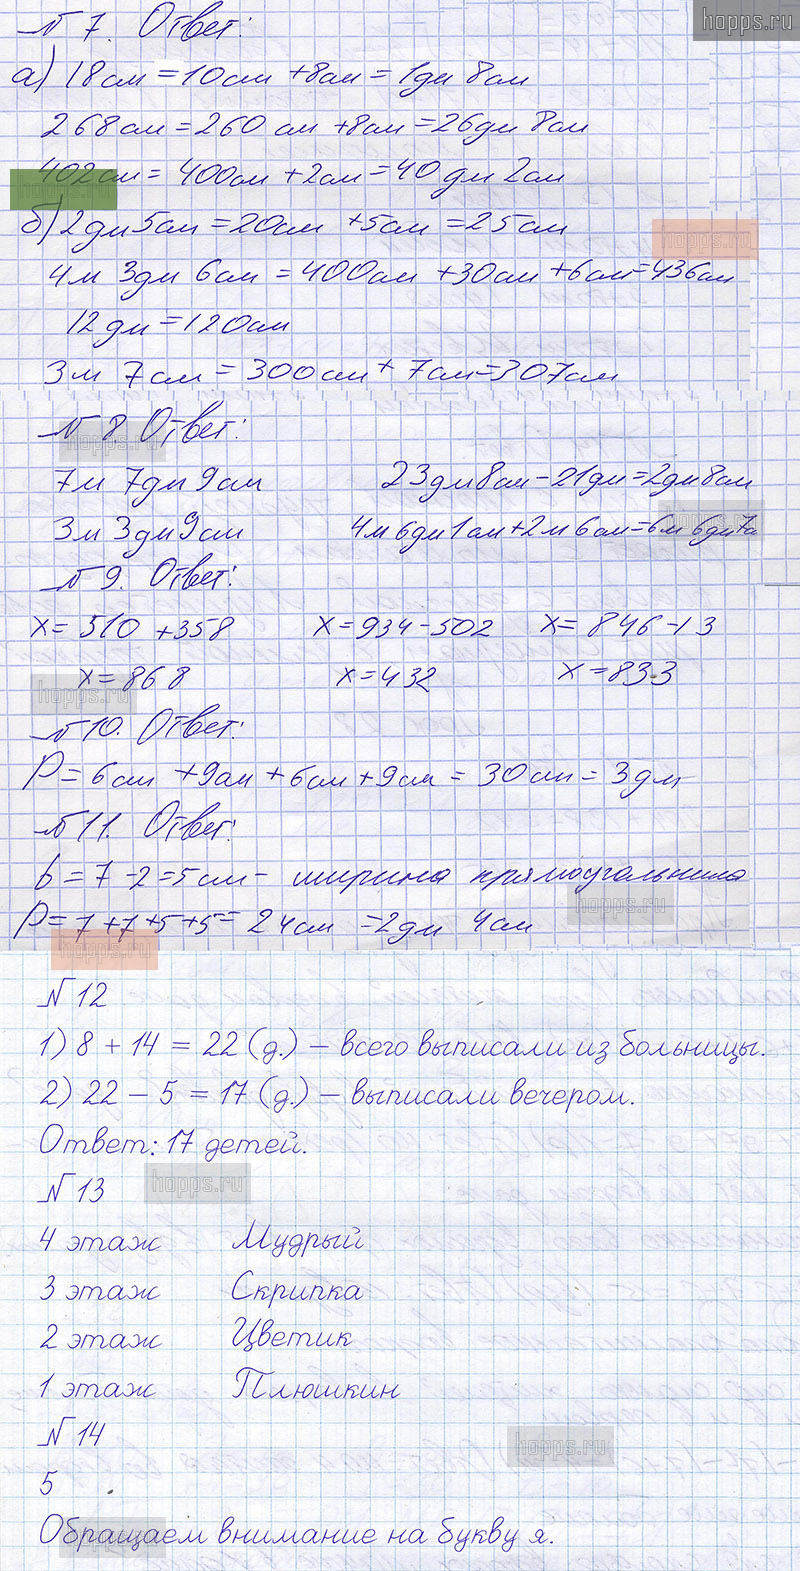 hopps.ru
№ 7. Ответ:
а) 18см = 10см + 8см = 1дм 8см
268см = 260 см + 8см = 26дм 8см
402см = 400см + 2см = 40 дм 2см
б) 2дм 5см = 20см + 5см = 25см
hopps.ru
4м 3дм 6см = 400см + 30см + 6см = 436см
12дм = 120см
3м 7см = 300см + 7см = 307см
№ 8. Ответ:
7м 7дм 9см 23дм 8см - 21дм = 2дм 8см
3м 3дм 9см 4м 6дм 1см + 2м 6см = 6м 6дм 7см
№ 9. Ответ:
x = 510 + 358 x = 934 - 502 x = 846 - 13
x = 868 x = 432 x = 833
hopps.ru
№ 10. Ответ:
P = 6см + 9см + 6см + 9см = 30см = 3дм
№ 11. Ответ:
b = 7 - 2 = 5 см - ширина прямоугольника
hopps.ru
P = 7 + 7 + 5 + 5 = 24см = 2дм 4см
hopps.ru
№ 12
1) 8 + 14 = 22 (д.) – всего выписали из больницы.
2) 22 – 5 = 17 (д.) – выписали вечером.
Ответ: 17 детей.
hopps.ru
№ 13
4 этаж Мудрый
3 этаж Скрипка
2 этаж Цветик
1 этаж Плюшкин
№ 14
hopps.ru
5
Обращаем внимание на букву я.
hopps.ru